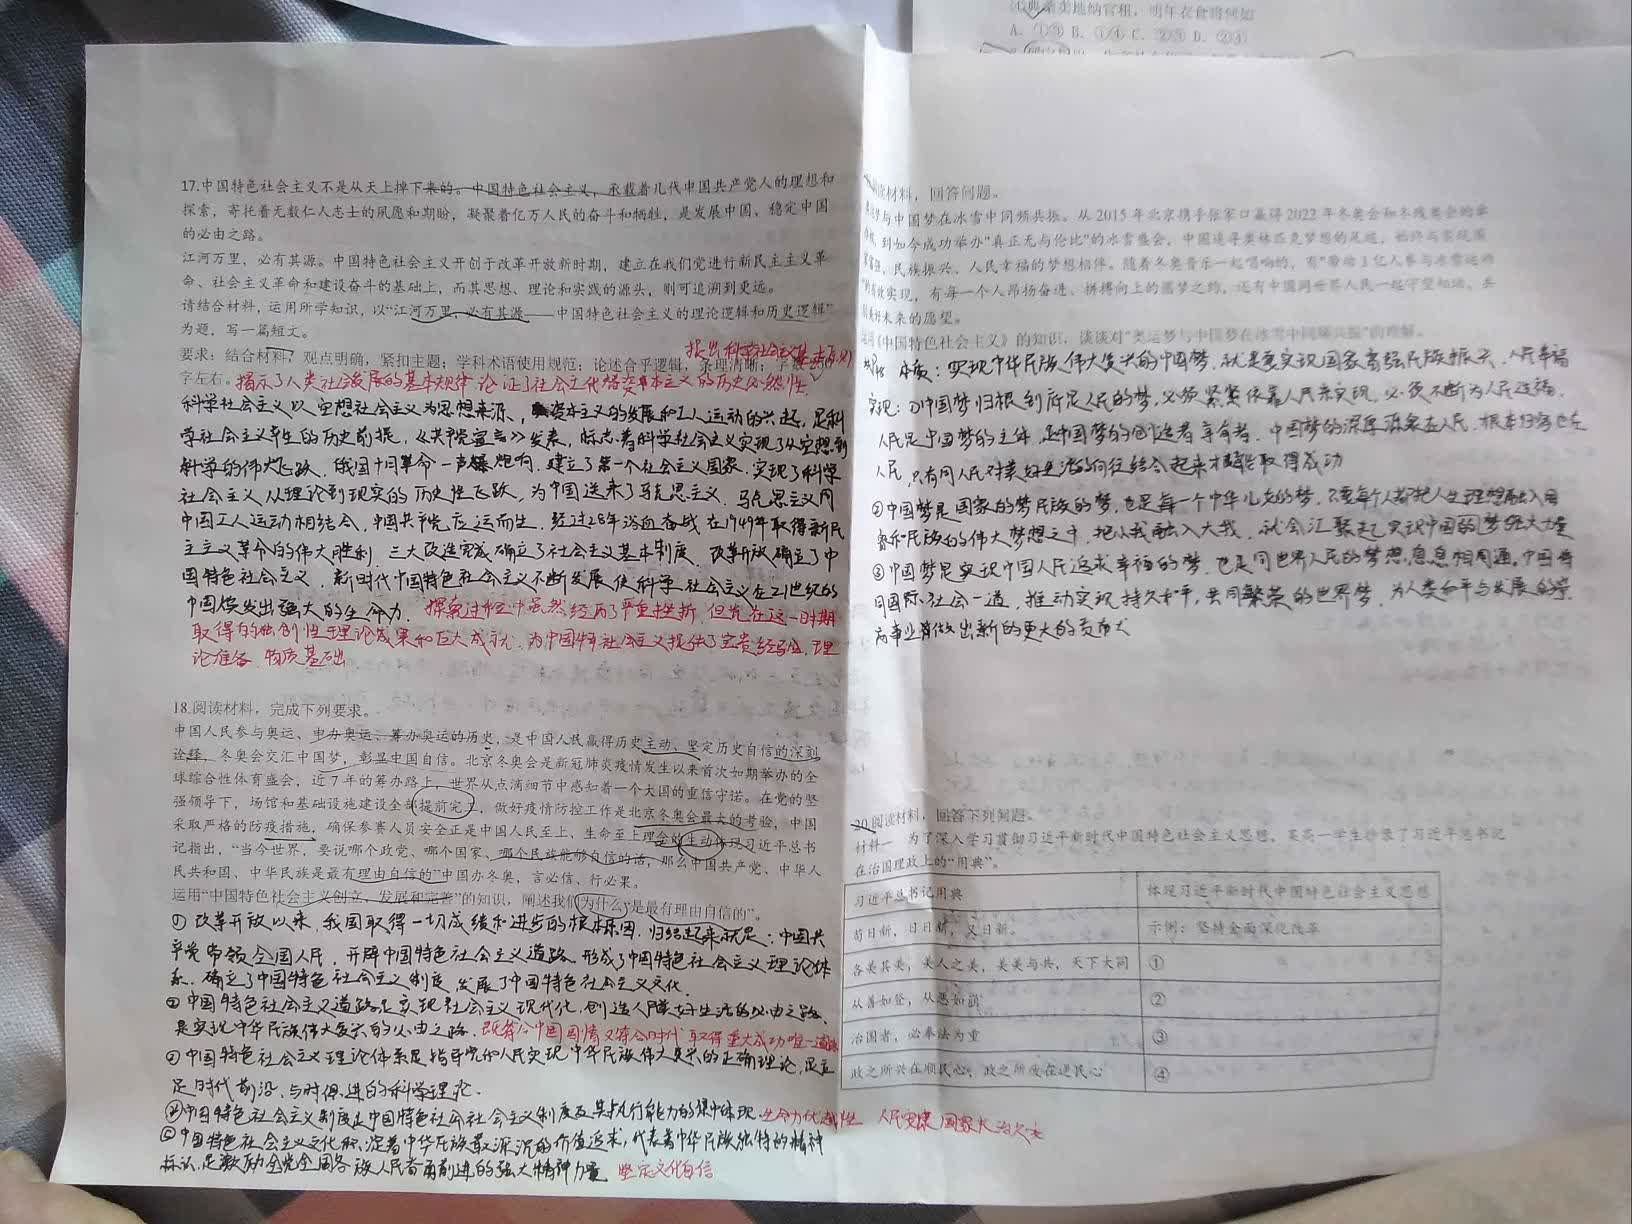 ④典桑卖地纳官租，明年衣食将何如
A. ①③ B. ①④ C. ②③ D. ②④
17.中国特色社会主义不是从天上掉下来的。中国特色社会主义，承载着几代中国共产党人的理想和
探索，寄托着无数仁人志士的夙愿和期盼，凝聚着亿万人民的奋斗和牺牲，是发展中国、稳定中国
的必由之路。
江河万里，必有其源。中国特色社会主义开创于改革开放新时期，建立在我们党进行新民主主义革
命、社会主义革命和建设奋斗的基础上，而其思想、理论和实践的源头，则可追溯到更远。
请结合材料，运用所学知识，以“江河万里，必有其源——中国特色社会主义的理论逻辑和历史逻辑”
为题，写一篇短文。
要求：结合材料，观点明确，紧扣主题；学科术语使用规范；论述合乎逻辑，条理清晰；字数
字左右。
提出科学社会主义基本原则
揭示了人类社会发展的基本规律 论证了社会主义代替资本主义的历史必然性
科学社会主义以空想社会主义为思想来源，资本主义的发展和工人运动的兴起，是科
学社会主义产生的历史前提，《共产党宣言》发表，标志着科学社会主义实现了从空想到
科学的伟大飞跃，俄国十月革命一声炮响，建立了第一个社会主义国家，实现了科学
社会主义从理论到现实的历史性飞跃，为中国送来了马克思主义，马克思主义同
中国工人运动相结合，中国共产党应运而生，经过28年浴血奋战，在1949年取得新民
主主义革命的伟大胜利，三大改造完成确立了社会主义基本制度，改革开放确立了中
国特色社会主义，新时代中国特色社会主义不断发展使科学社会主义在21世纪的
中国焕发出强大的生命力. 探索过程中虽然经历了严重挫折，但党在这一时期
取得的独创性理论成果和巨大成就，为中国特社会主义提供了宝贵经验，理
论准备，物质基础
18.阅读材料，完成下列要求。
中国人民参与奥运、申办奥运、筹办奥运的历史，是中国人民赢得历史主动、坚定历史自信的深刻
诠释，冬奥会交汇中国梦，彰显中国自信。北京冬奥会是新冠肺炎疫情发生以来首次如期举办的全
球综合性体育盛会，近7年的筹办路上，世界从点滴细节中感知着一个大国的重信守诺。在党的坚
强领导下，场馆和基础设施建设全部提前完工，做好疫情防控工作是北京冬奥会最大的考验，中国
采取严格的防疫措施，确保参赛人员安全正是中国人民至上，生命至上理念的生动体现习近平总书
记指出，“当今世界，要说哪个政党、哪个国家、哪个民族能够自信的话，那么中国共产党、中华人
民共和国、中华民族是最有理由自信的”中国办冬奥，言必信、行必果。
运用“中国特色社会主义创立、发展和完善”的知识，阐述我们为什么“是最有理由自信的”。
①改革开放以来，我国取得一切成绩和进步的根本原因，归结起来就是：中国共
产党带领全国人民，开辟中国特色社会主义道路，形成了中国特色社会主义理论体
系，确立了中国特色社会主义制度，发展了中国特色社会主义文化.
②中国特色社会主义道路是实现社会主义现代化，创造人民美好生活的必由之路，
是实现中华民族伟大复兴的必由之路. 既符合中国国情又符合时代 取得重大成功唯一道路
③中国特色社会主义理论体系是指导党和人民实现中华民族伟大复兴的正确理论，是立
足时代前沿、与时俱进的科学理论.
④中国特色社会主义制度是中国特色社会社会主义制度及其执行能力的集中体现. 生命力优越性 人民安康 国家长治久安
⑤中国特色社会主义文化积淀着中华民族最深沉的价值追求，代表着中华民族独特的精神
标识，是激励全党全国各族人民奋勇前进的强大精神力量 坚定文化自信
阅读材料，回答问题。
梦与中国梦在冰雪中同频共振。从2015年北京携手张家口赢得2022年冬奥会和冬残奥会的举
到如今成功举办“真正无与伦比”的冰雪盛会，中国追寻奥林匹克梦想的足迹，始终与实现国
家富强、民族振兴、人民幸福的梦想相伴。随着冬奥音乐一起唱响的，有“带动3亿人参与冰雪运动
有效实现，有每一个人昂扬奋进、拼搏向上的圆梦之约，还有中国同世界人民一起守望相助、共
美好未来的愿望。
《中国特色社会主义》的知识，谈谈对“奥运梦与中国梦在冰雪中同频共振”的理解。
本质：实现中华民族伟大复兴的中国梦，就是要实现国家富强民族振兴、人民幸福
实现：①中国梦归根到底是人民的梦，必须紧紧依靠人民来实现，必须不断为人民造福，
人民是中国梦的主体，是中国梦的创造者享有者，中国梦的深厚源泉在人民，根本归宿也在
人民，只有同人民对美好生活的向往结合起来才能取得成功
②中国梦是国家的梦民族的梦，也是每一个中华儿女的梦，只要每个人都把人生理想融入国
家和民族的伟大梦想之中，把小我融入大我，就会汇聚起实现中国的梦强大力量
③中国梦是实现中国人民追求幸福的梦，也是同世界人民的梦想息息相通，中国将
同国际社会一道，推动实现持久和平，共同繁荣的世界梦，为人类和平与发展的崇
高事业做出新的更大的贡献
20.阅读材料，回答下列问题。
材料一 为了深入学习贯彻习近平新时代中国特色社会主义思想，某高一学生抄录了习近平总书记
在治国理政上的“用典”。
习近平总书记用典 体现习近平新时代中国特色社会主义思想
苟日新，日日新，又日新。 示例：坚持全面深化改革
各美其美，美人之美，美美与共，天下大同 ①
从善如登，从恶如崩 ②
治国者，必奉法为重 ③
政之所兴在顺民心，政之所废在逆民心 ④